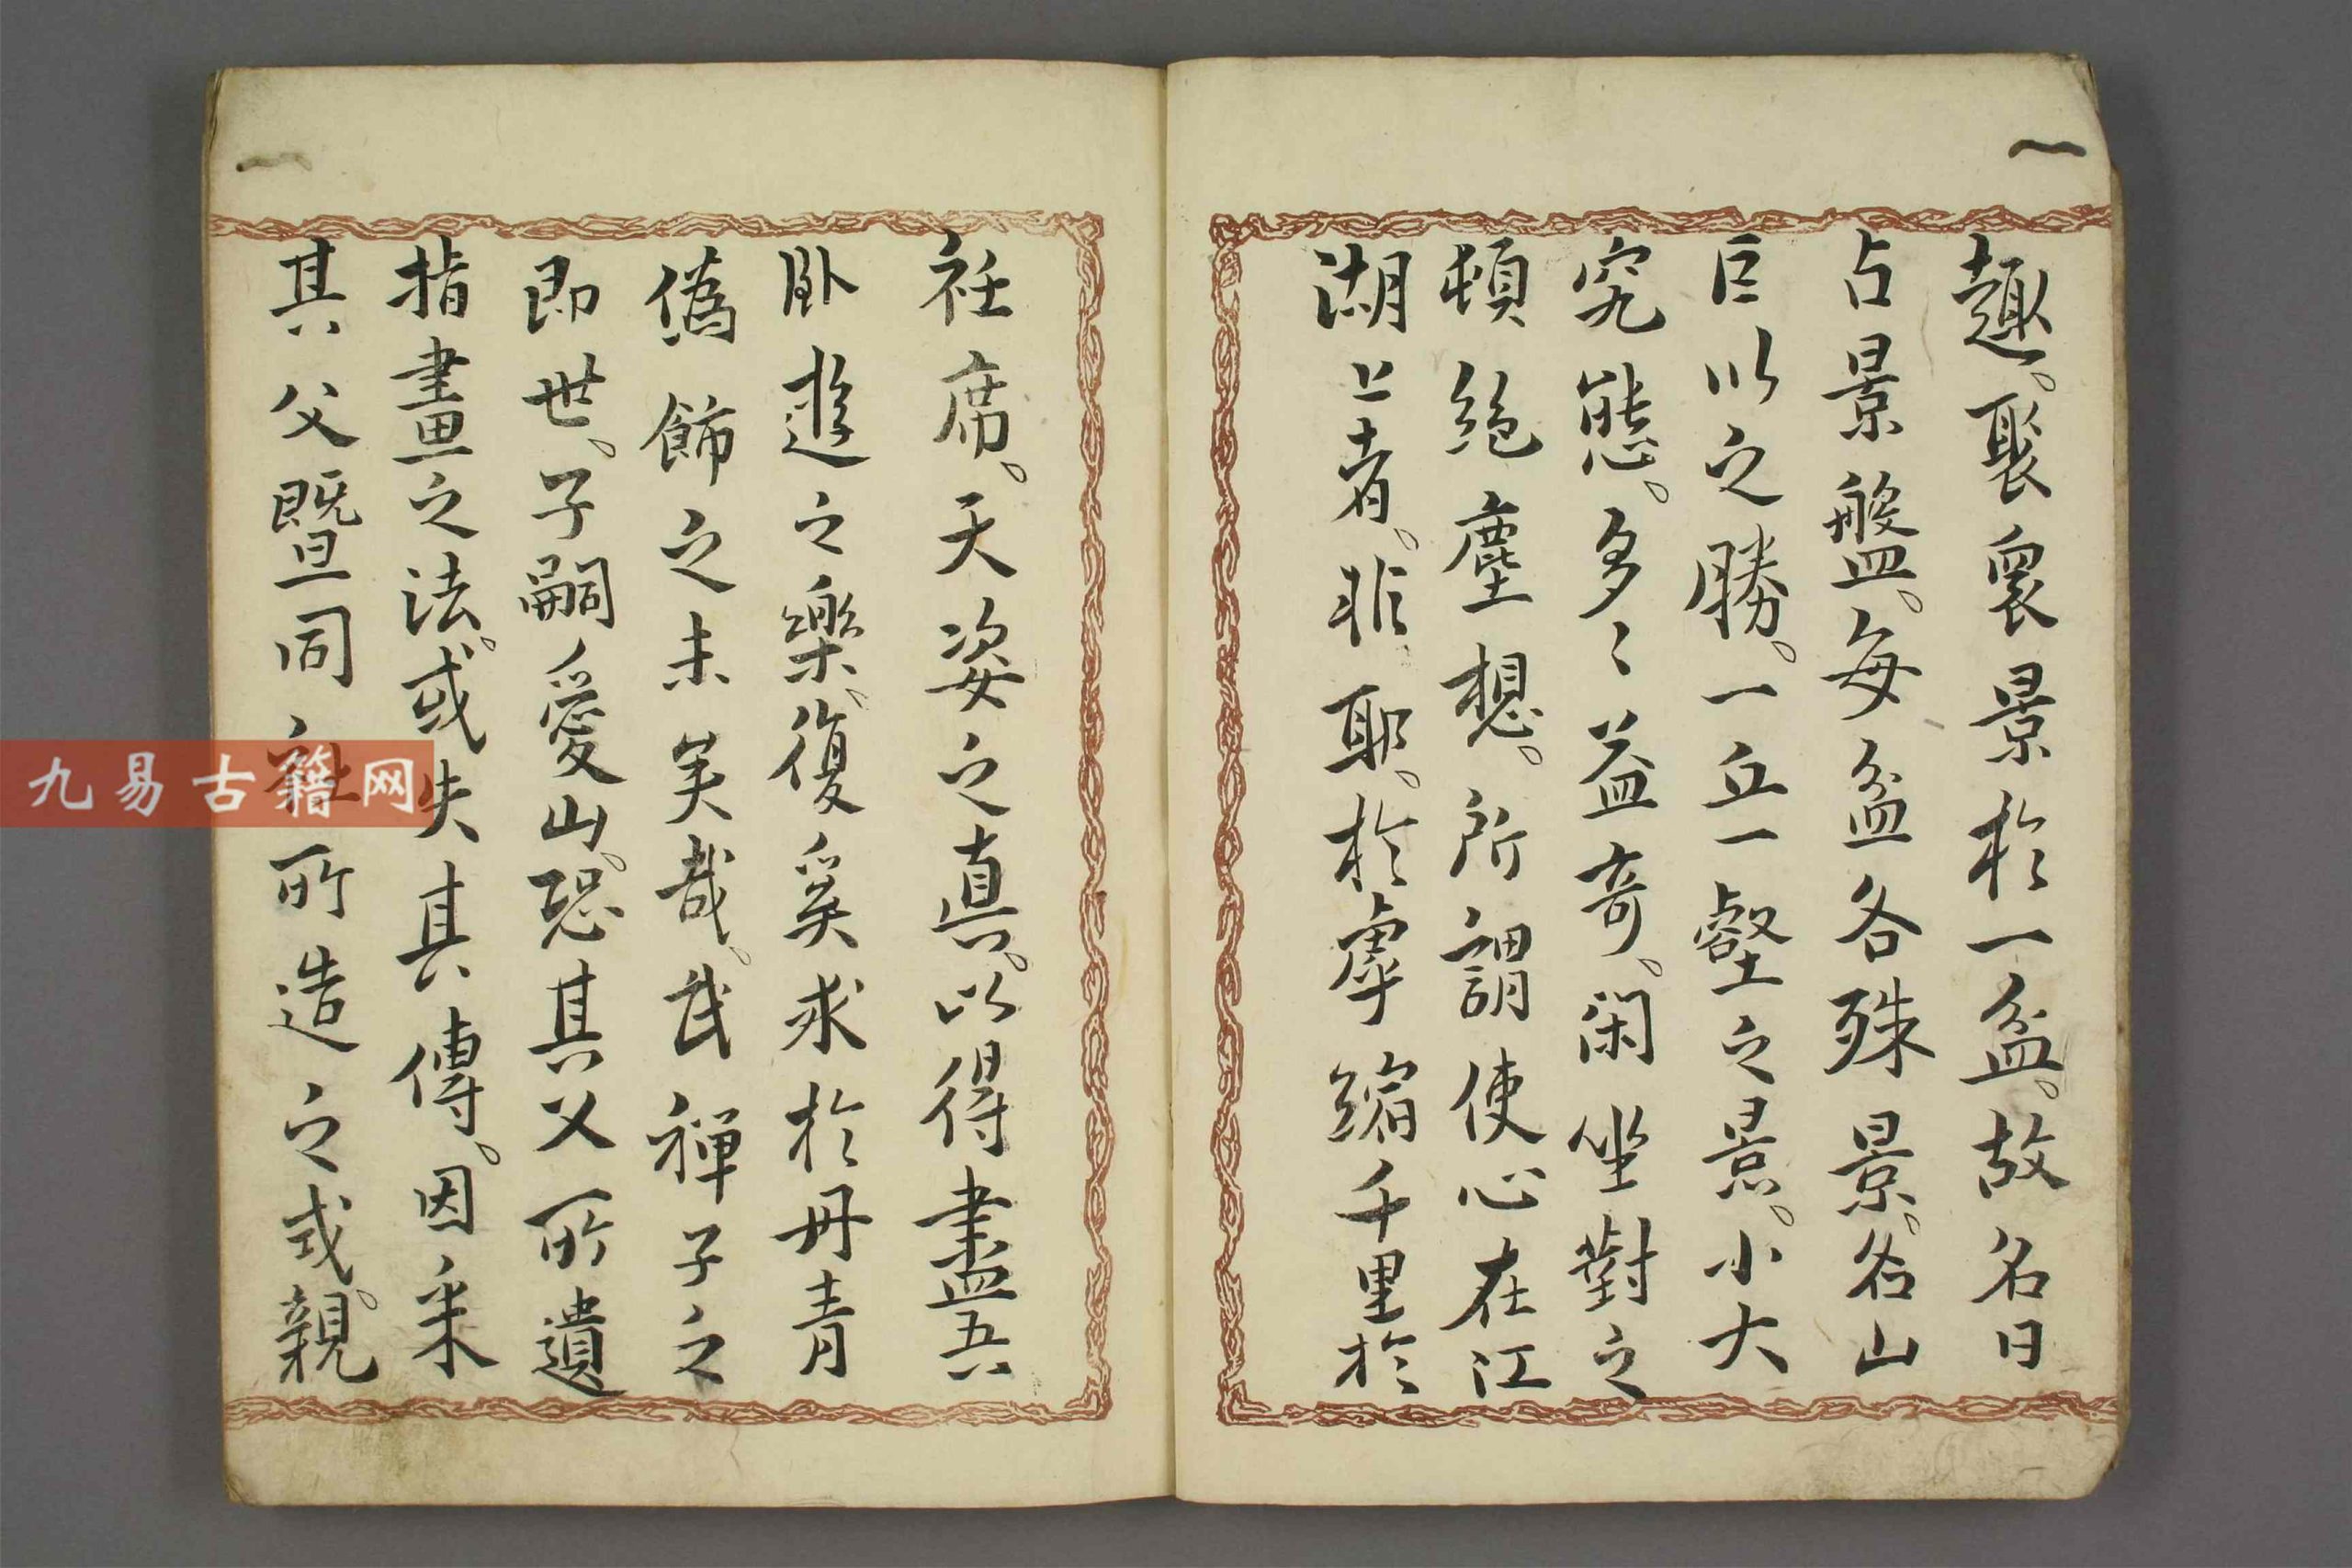 趣。聚衆景於一盆。故名曰
占景盤。每盆各殊景。名山
巨以之勝。一丘一壑之景。小大
究態。多〻益奇。闲坐對之
頓絶塵想。所謂使心在江
湖上者。非耶。於庠縮千里於
衽席。天姿之真。以得盡吾
卧遊之樂。復奚求於丹青
偽飾之未美哉。武禅子之
即世。子嗣愛山。恐其父所遺
指畫之法。或失其傳。因采
其父暨同社所造之式。親
九易古籍网